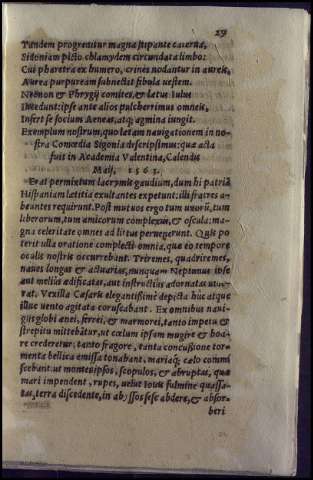 29
Tandem progreditur magna stipante caterua,
Sidoniam picto chlamydem circundata limbo:
Cui pharetra ex humero, crines nodantur in aurum,
Aurea purpuream subnectit fibula uestem.
Necnon & Phrygij comites, & lætus Iulus
Incedunt: ipse ante alios pulcherrimus omneis,
Infert se socium Aeneas, atq; agmina iungit.
Exemplum nostrum, quo lætam nauigationem in no-
stra Comœdia Sigonia descripsimus: quæ acta
fuit in Academia Valentina, Calendis
Maij, 1563.
Erat permixtum lacrymis gaudium, dum hi patriã
Hispaniam lætitia exultantes expetunt: illi fratres a-
beuntes requirunt. Post mutuos ergo tum uxorũ, tum
liberorum, tum amicorum complexus, & oscula: ma-
gna celeritate omnes ad littus peruenerunt. Quis po-
terit ulla oratione complecti omnia, quæ eo tempore
oculis nostris occurrebant. Triremes, quadriremes,
naues longas & actuarias, nunquam Neptunus ipse
aut melius ædificatas, aut instructius adornatas uide-
rat. Vexilla Cæsaris elegantissimè depicta huc atque
illuc uento agitata coruscabant. Ex omnibus naui-
gijs globi ænei, ferrei, & marmorei, tanto impetu &
strepitu mittebãtur, ut cœlum ipsum mugire & boa-
re crederetur: tanto fragore, tanta concussione tor-
menta bellica emissa tonabant, mariaq; cælo commi
scebant: ut monteis ipsos, scopulos, & abruptas, quæ
mari impendent, rupes, uelut Iouis fulmine quassa-
tas, terra discedente, in abyssos sese abdere, & absor-
beri